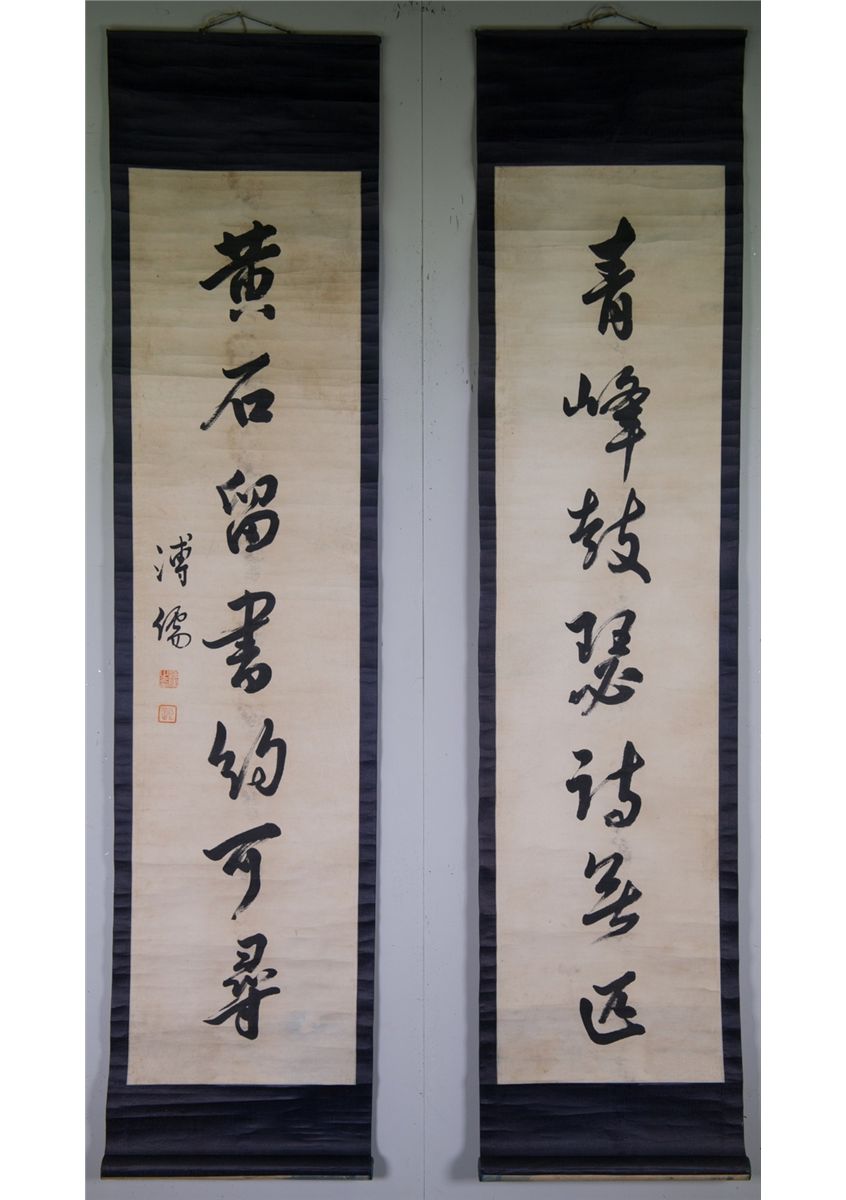 青峰鼓瑟詩無匹
黃石留書約可尋
溥儒